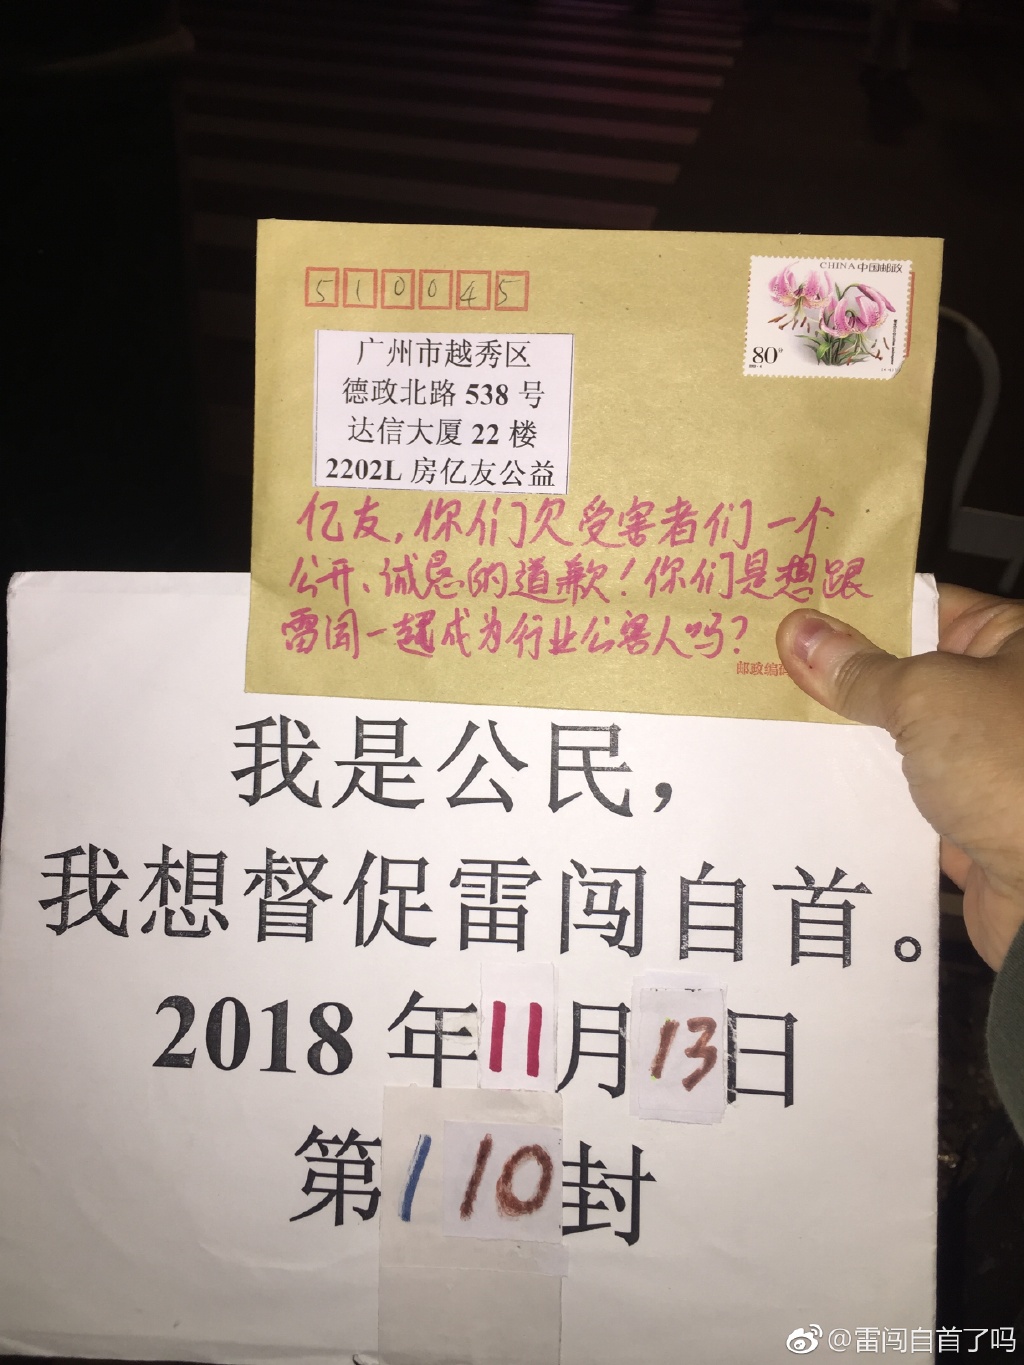 510045
CHINA 中国邮政
80分
广州市越秀区
德政北路 538 号
达信大厦 22 楼
2202L 房亿友公益
亿友,你们欠受害者们一个
公开、诚恳的道歉!你们是想跟
雷闯一起成为行业公害人吗?
邮政编码
我是公民,
我想督促雷闯自首。
2018 年 11 月 13 日
第 110 封
@雷闯自首了吗